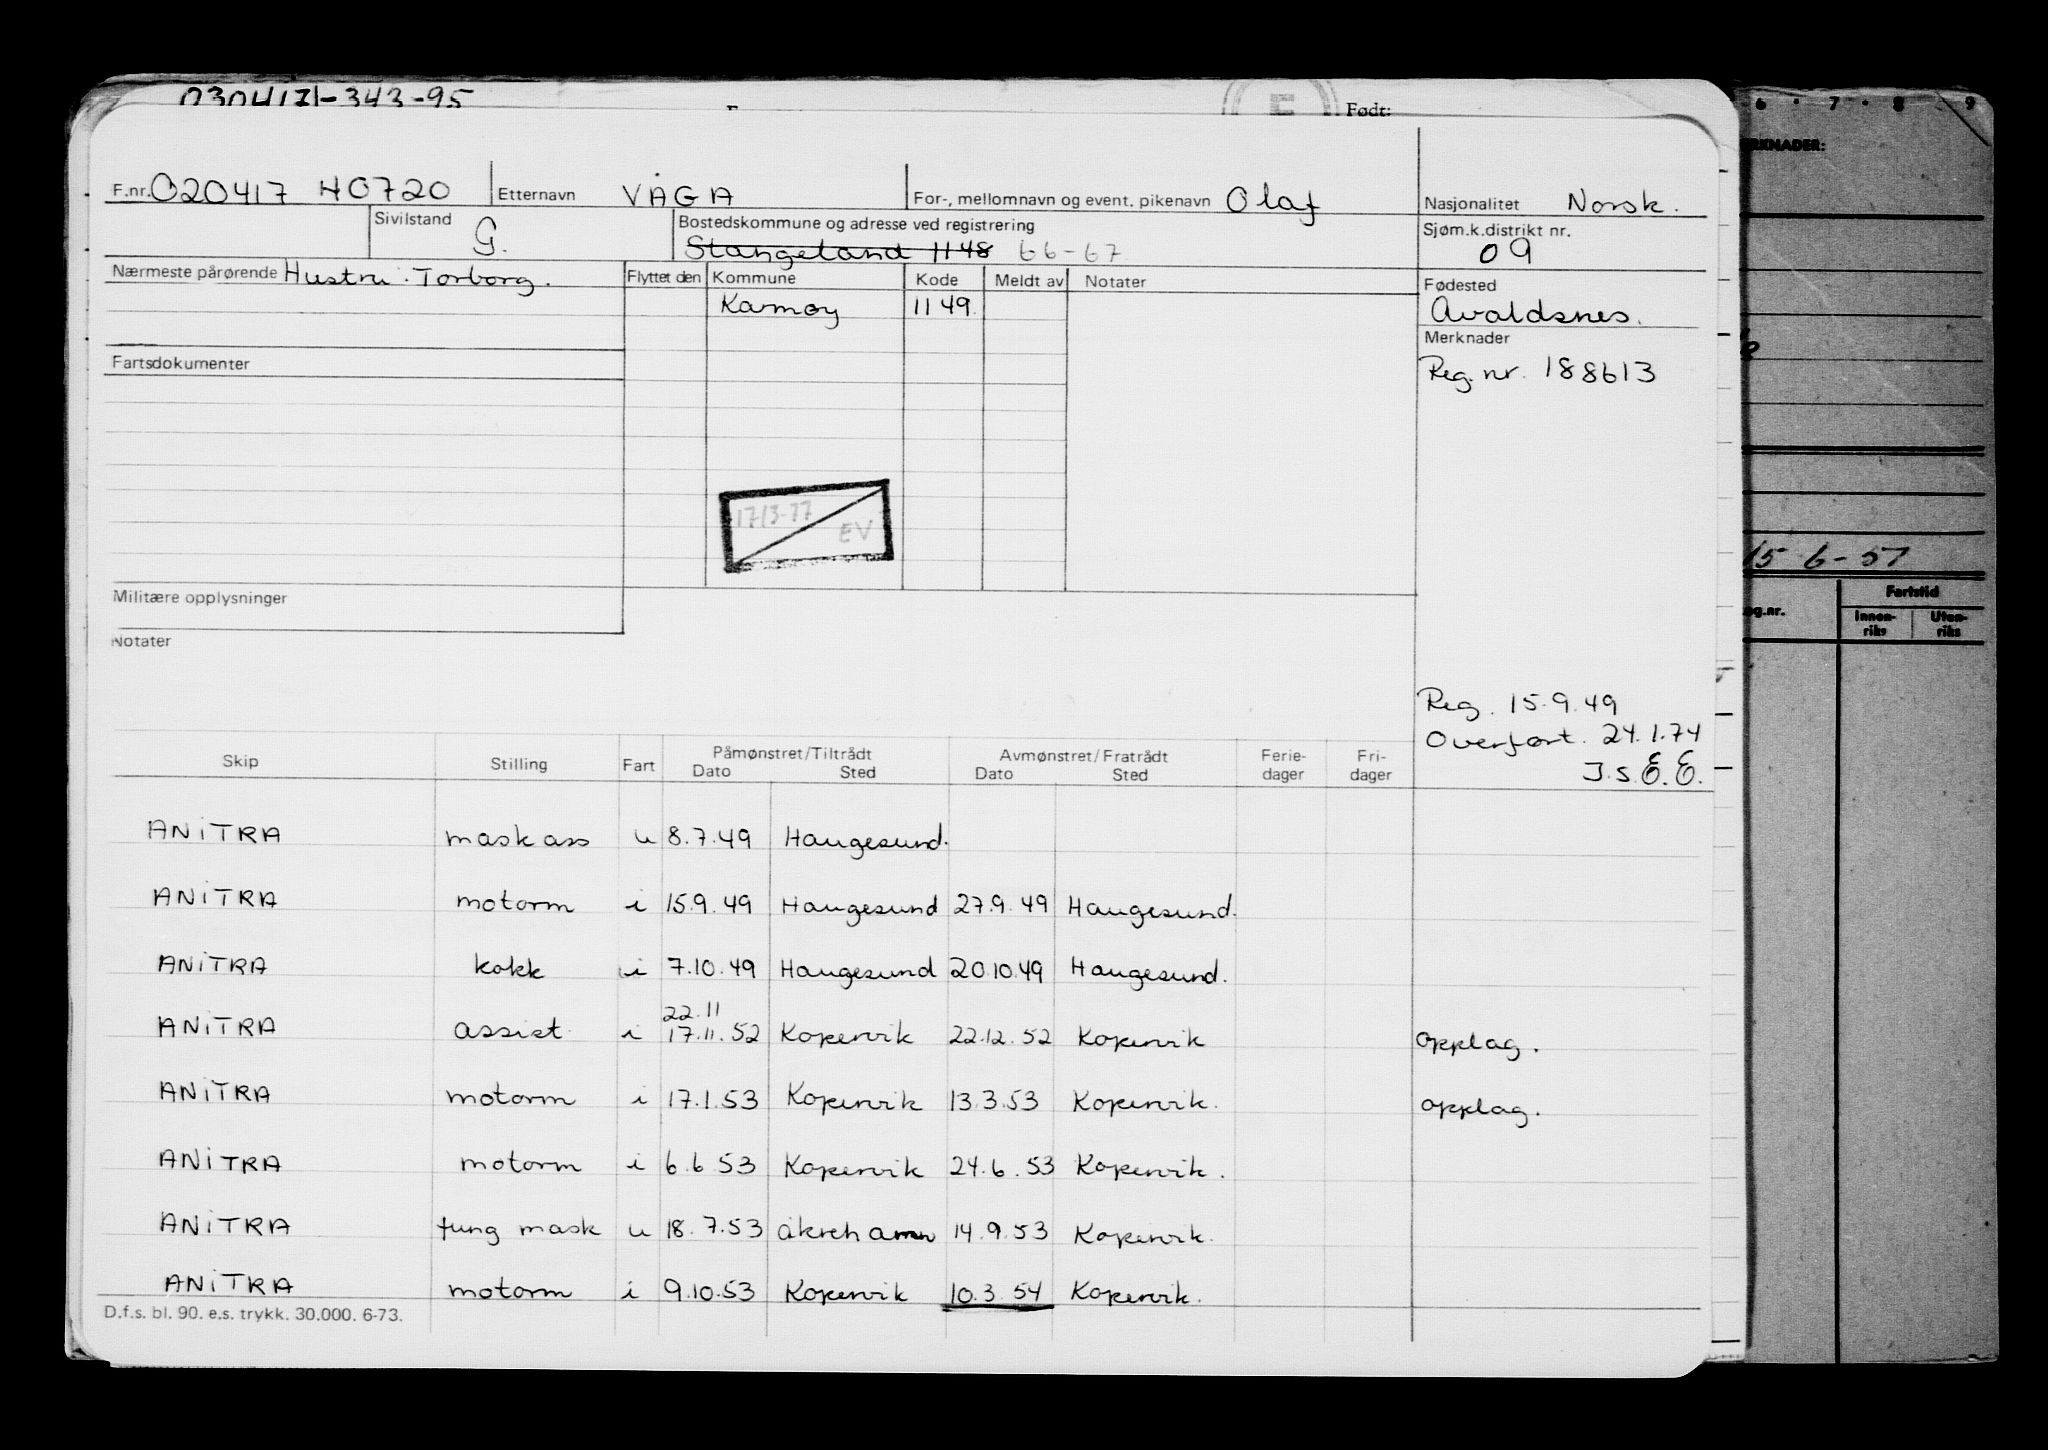 030417-343-95
Født:
6 · 7 · 8 · 9
F.nr. 020417 40720 Etternavn VÅGA For-, mellomnavn og event. pikenavn Olaf Nasjonalitet Norsk.
Sivilstand G. Bostedskommune og adresse ved registrering Stangeland 1148 66-67 Sjøm.k.distrikt nr. 09
Nærmeste pårørende Hustru: Torborg. Flyttet den Kommune Kode Meldt av Notater Fødested
Karmøy 1149 Avaldsnes.
Merknader
Fartsdokumenter
Reg. nr. 188613
17/3-77
EV
15-6-51
Militære opplysninger
Fartstid
Innen-riks Uten-riks
Notater
Reg. 15.9.49
Overført. 24.1.74
J.s. E.E.
Skip Stilling Fart Påmønstret/Tiltrådt Avmønstret/Fratrådt Ferie- Fri-
Dato Sted Dato Sted dager dager
ANiTRA maskass u 8.7.49 Haugesund.
ANiTRA motorm i 15.9.49 Haugesund 27.9.49 Haugesund.
ANiTRA kokk i 7.10.49 Haugesund 20.10.49 Haugesund.
22.11
ANiTRA assist i 17.11.52 Kopervik 22.12.52 Kopervik opplag.
ANiTRA motorm i 17.1.53 Kopervik 13.3.53 Kopervik. opplag.
ANiTRA motorm i 6.6 53 Kopervik 24.6.53 Kopervik.
ANiTRA fung mask u 18.7.53 åkrehamn 14.9.53 Kopervik.
ANiTRA motorm i 9.10.53 Kopervik 10.3.54 Kopervik.
D.f.s. bl. 90. e.s. trykk. 30.000. 6-73.